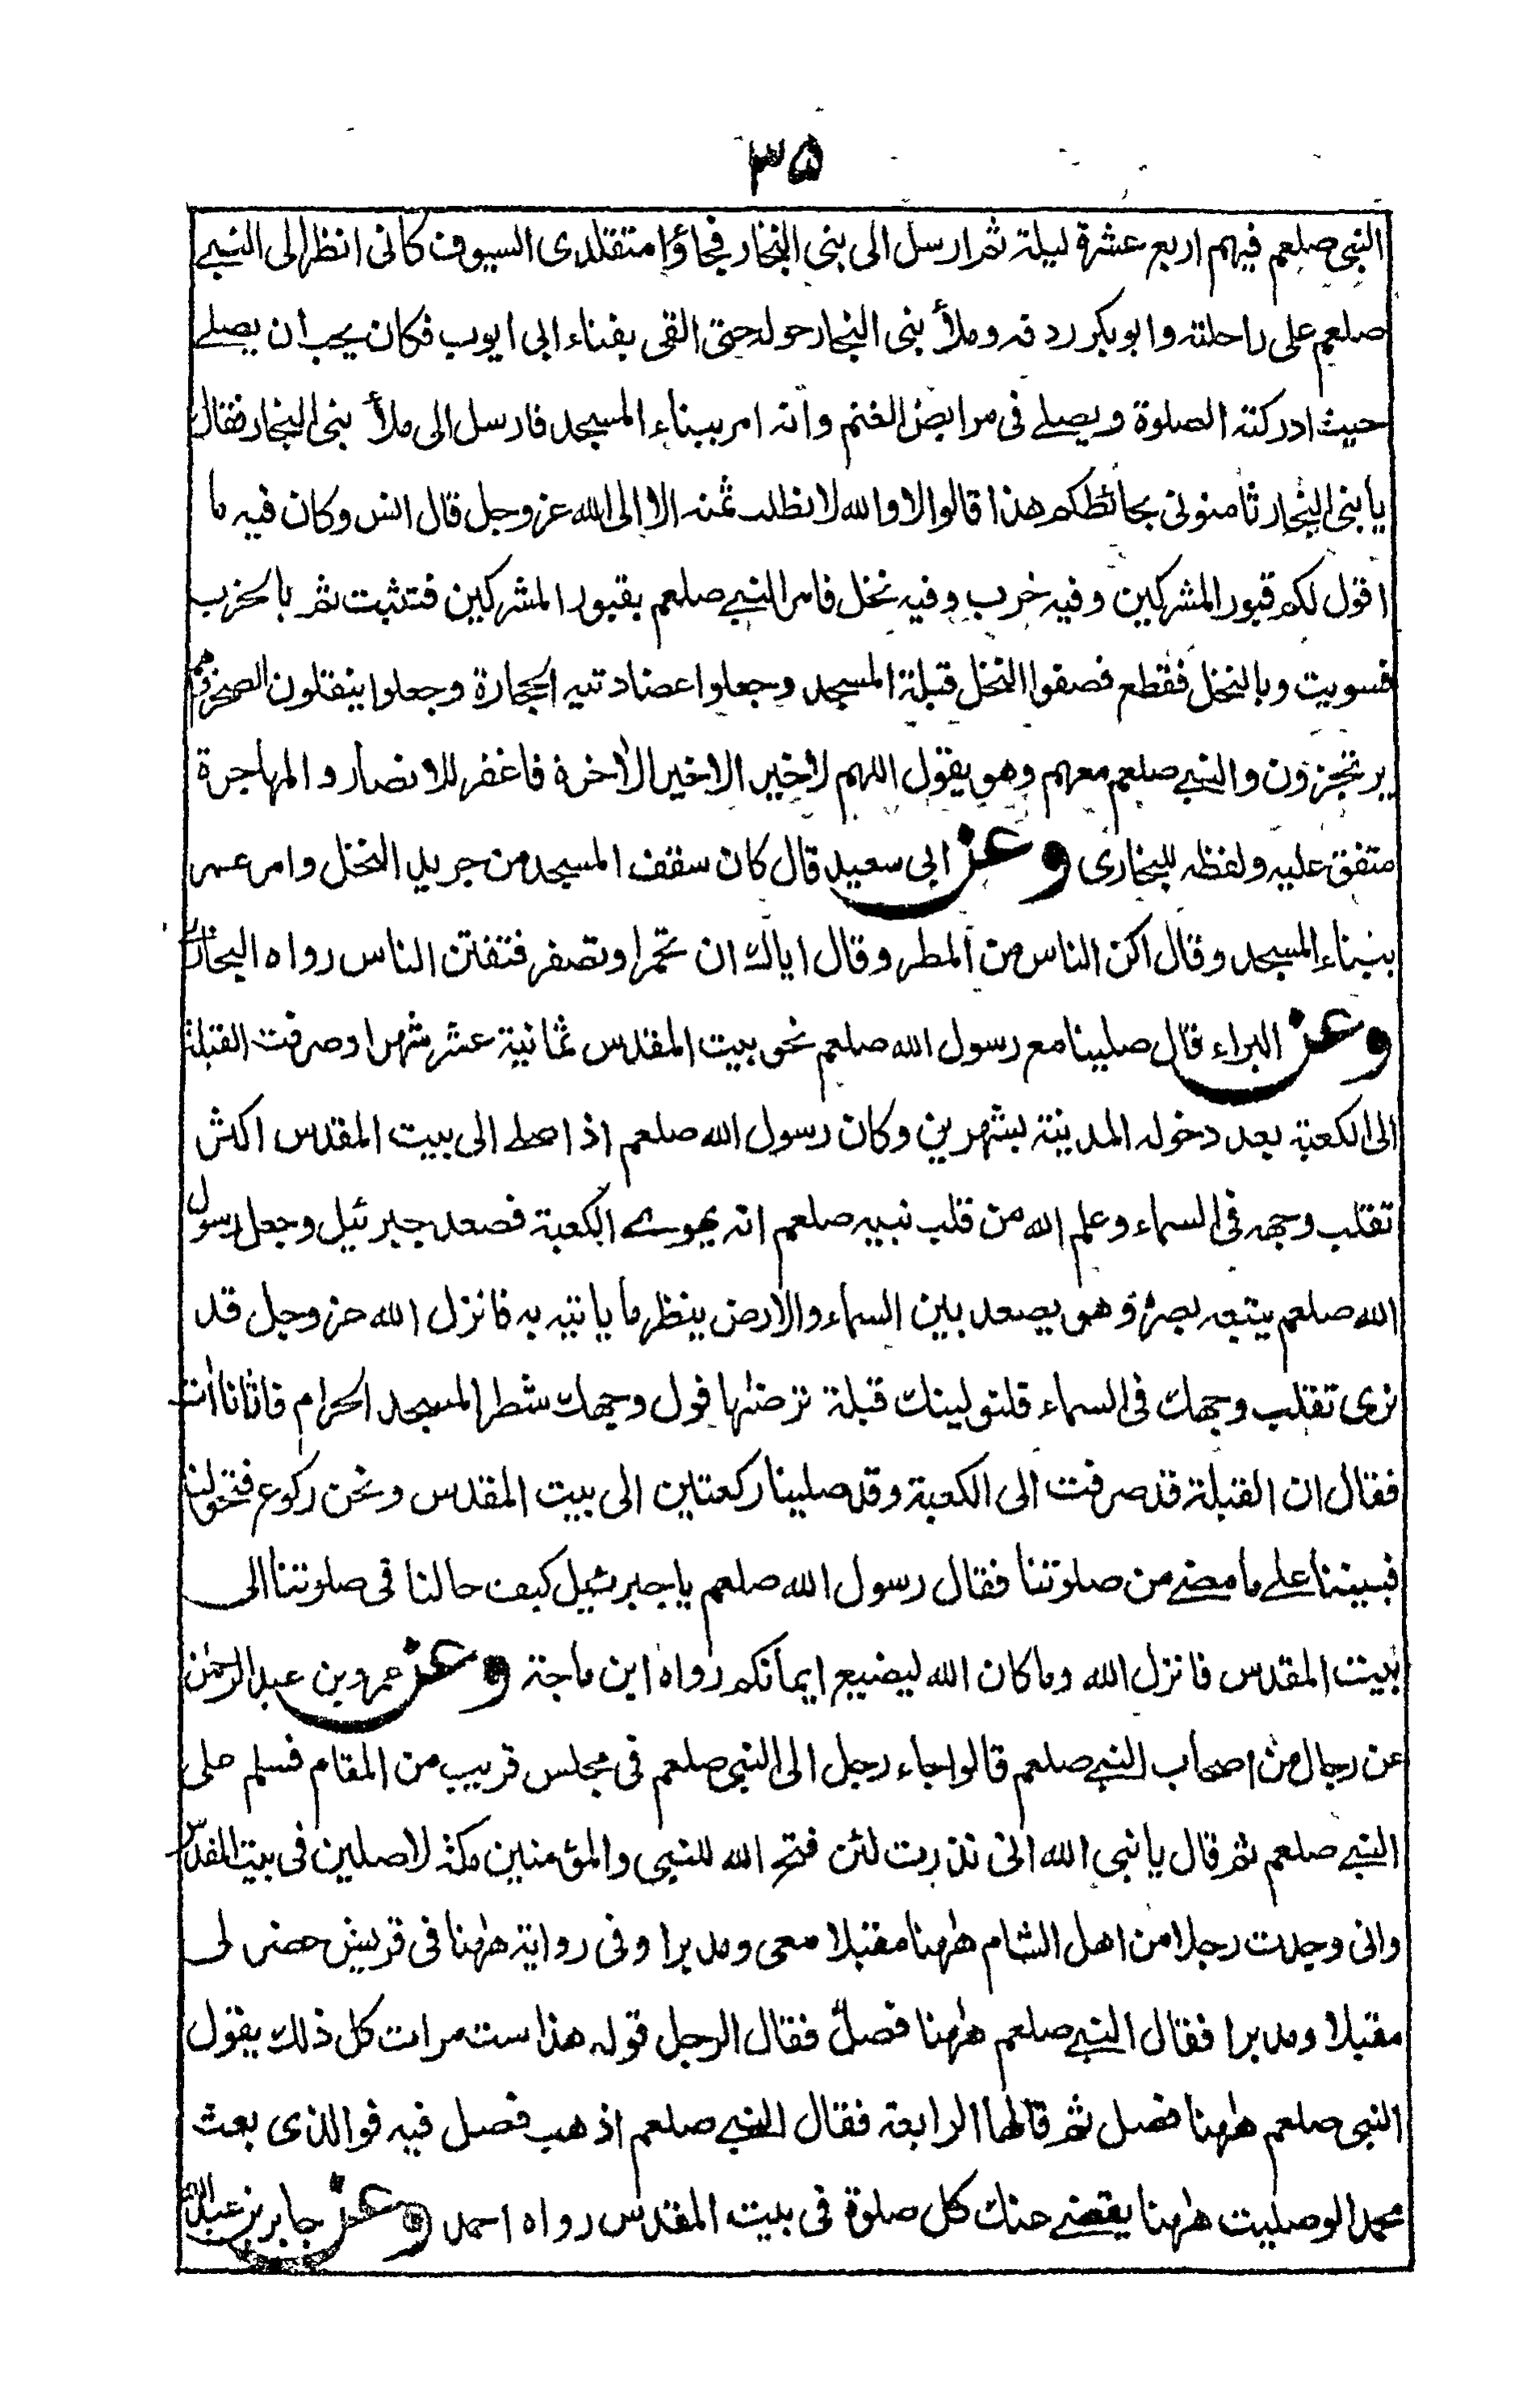 ۳۵
النبی صلعم فیهم اربع عشرة لیلة ثم ارسل الی بنی النجار فجاؤا متقلدی السیوف کانی انظر الی النبے
صلعم علی راحلته وابو بکر ردفه وملأ بنی النجار حوله حتی القی بفناء ابی ایوب فکان یحب ان یصلے
حیث ادرکته الصلوة ویصلے فی مرابض الغنم وانه امر ببناء المسجد فارسل الی ملأ بنی النجار فقال
یا بنی النجار ثامنونی بحائطکم هذا قالوا لا والله لا نطلب ثمنه الا الی الله عز وجل قال انس وکان فیه ما
اقول لکم قبور المشرکین وفیه خرب وفیه نخل فامر النبے صلعم بقبور المشرکین فنبشت ثم بالخرب
فسویت وبالنخل فقطع فصفوا النخل قبلة المسجد وجعلوا عضادتیه الحجارة وجعلوا ینقلون الصخر وهم
یرتجزون والنبے صلعم معهم وهو یقول اللهم لا خیر الا خیر الاٰخرة فاغفر للانصار والمهاجرة
متفق علیه ولفظه للبخاری وعن ابی سعید قال کان سقف المسجد من جرید النخل وامر عمر
ببناء المسجد وقال اکن الناس من المطر وقال ایاك ان تحمر او تصفر فتفتن الناس رواه البخاری
وعن البراء قال صلینا مع رسول الله صلعم نحو بیت المقدس ثمانیة عشر شهرا وصرفت القبلة
الی الکعبة بعد دخوله المدینة بشهرین وکان رسول الله صلعم اذا صلی الی بیت المقدس اکثر
تقلب وجهه فی السماء وعلم الله من قلب نبیه صلعم انه یهوے الکعبة فصعد جبرئیل وجعل رسول
الله صلعم یتبعه بصره وهو یصعد بین السماء والارض ینظر ما یاتیه به فانزل الله عز وجل قد
نری تقلب وجهك فی السماء فلنولینك قبلة ترضٰها فول وجهك شطر المسجد الحرام فاتانا اٰت
فقال ان القبلة قد صرفت الی الکعبة وقد صلینا رکعتین الی بیت المقدس ونحن رکوع فتحولنا
فبنینا علے ما مضے من صلوتنا فقال رسول الله صلعم یا جبرئیل کیف حالنا فی صلوتنا الی
بیت المقدس فانزل الله وما کان الله لیضیع ایمانکم رواه ابن ماجة وعن عمرو بن عبد الرحمٰن
عن رجال من اصحاب النبے صلعم قالوا جاء رجل الی النبی صلعم فی مجلس قریب من المقام فسلم علی
النبے صلعم ثم قال یا نبی الله انی نذرت لئن فتح الله للنبی والمؤمنین مکة لاصلین فی بیت المقدس
وانی وجدت رجلا من اهل الشام هٰهنا مقبلا معی ومدبرا وفی روایة هٰهنا فی قریش حضر لی
مقبلا ومدبرا فقال النبے صلعم هٰهنا فصل فقال الرجل قوله هذا ست مرات کل ذلك یقول
النبی صلعم هٰهنا فصل ثم قالها الرابعة فقال النبے صلعم اذهب فصل فیه فو الذی بعث
محمدا لو صلیت هٰهنا یقضے عنك کل صلوة فی بیت المقدس رواه احمد وعن جابر بن عبد الله